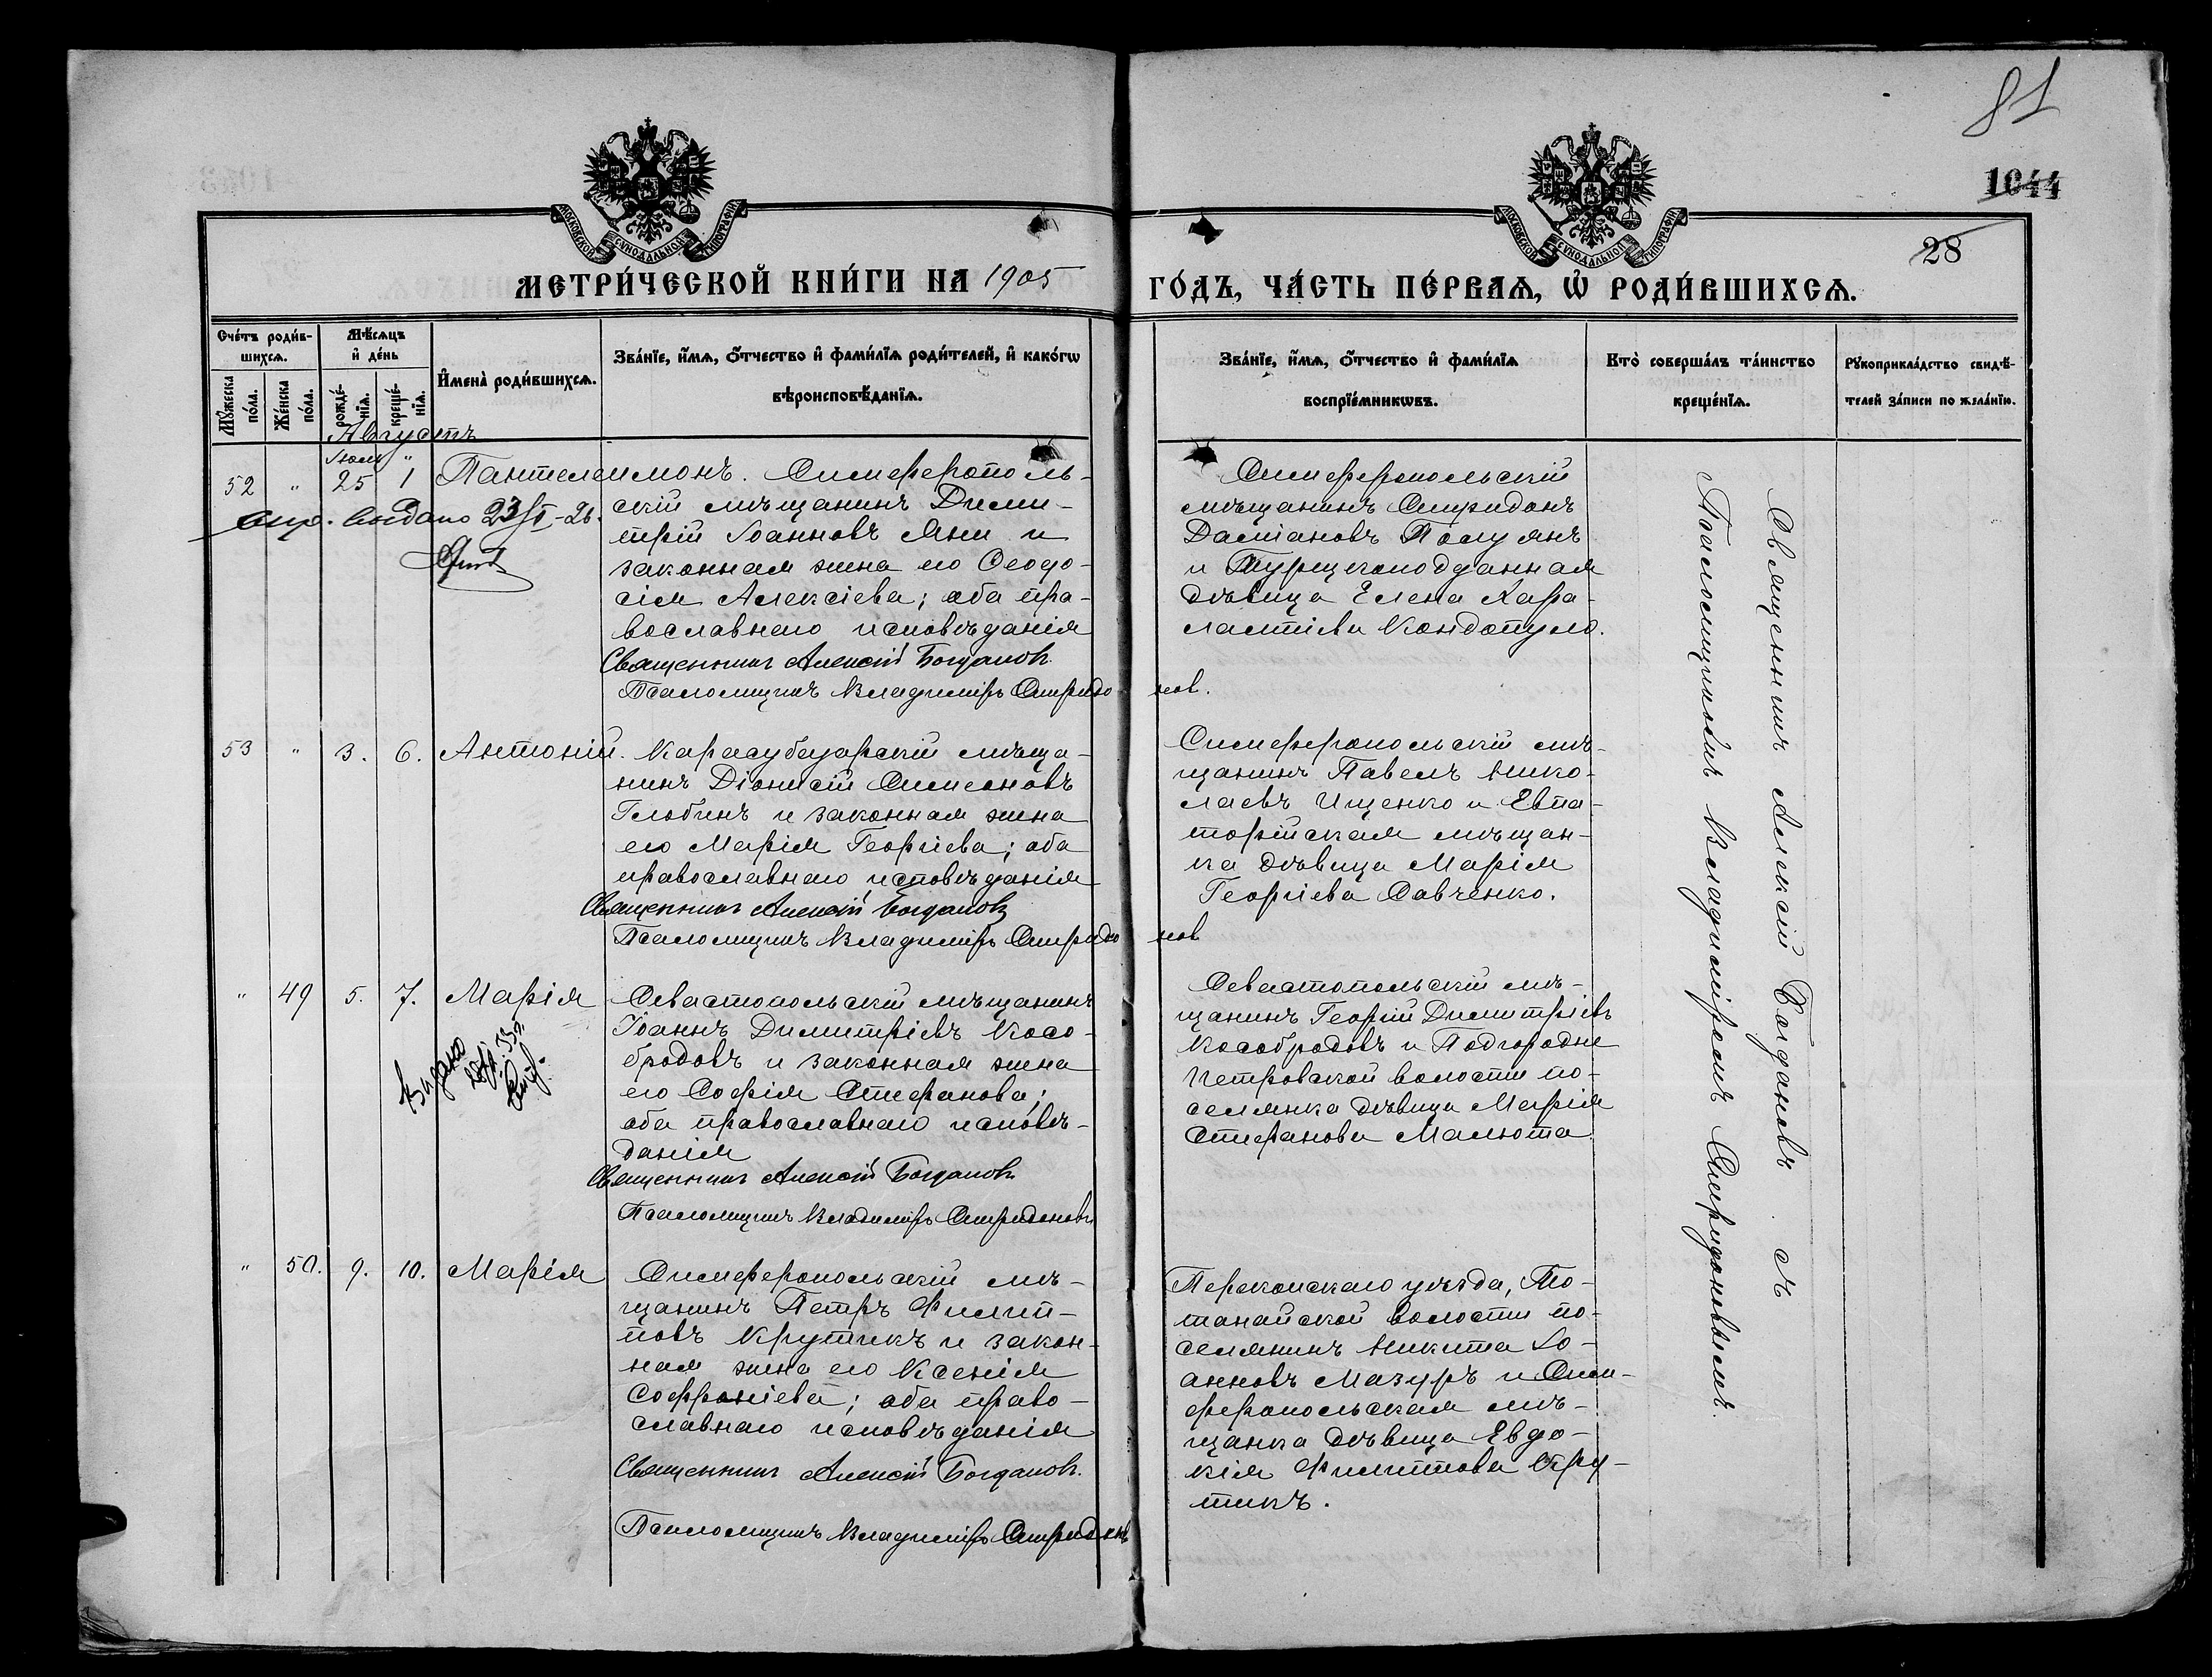 81
1044
28
МОСКОВСКОЙ СѴНОДАЛЬНОЙ ТИПОГРАФІИ
МОСКОВСКОЙ СѴНОДАЛЬНОЙ ТИПОГРАФІИ
МЕТРИ́ЧЕСКОЙ КНИ́ГИ НА 1905 ГО́ДЪ, ЧА́СТЬ ПЕ́РВАѦ, Ѡ҆ РОДИ́ВШИХСѦ.
Сче́тъ роди́в-
шихсѧ.
Мꙋ́жеска по́ла.
Же́нска по́ла.
Мѣ́сѧцъ
и҆ де́нь
рожде́-
нїѧ.
креще́-
нїѧ.
И҆мена̀ роди́вшихсѧ.
Зва́нїе, и҆́мѧ, ѻ҆́тчество и҆ фами́лїѧ роди́телей, и҆ како́гѡ
вѣроисповѣ́данїѧ.
Зва́нїе, и҆́мѧ, ѻ҆́тчество и҆ фами́лїѧ
воспрїе́мникѡвъ.
Кто̀ соверша́лъ та́инство
креще́нїѧ.
Рꙋкоприкла́дство свидѣ́-
телей за́писи по жела́нїю.
Августъ
Іюль "
52 " 25 1 Пантелеимонъ. Симферополь-
скій мѣщанинъ Дими-
трій Іоанновъ Яни и
законная жена его Ѳеодо-
сія Алексіева; оба пра-
вославнаго исповѣданія
Священникъ Алексій Богдановъ.
Псаломщикъ Владиміръ Спиридонов.
выдано 23/
Симферопольскій
мѣщанинъ Спиридонъ
Даміановъ Полу янъ
и Турецкоподданная
дѣвица Елена Хара-
лампіева Кондопуло.
53 " 3. 6. Антоній. Карасубазарскій мѣща-
нинъ Діонисій Симеоновъ
Глобинъ и законная жена
его Марія Георгіева; оба
православнаго исповѣданія
Священникъ Алексій Богдановъ
Псаломщикъ Владиміръ Спиридонов
Симферопольскій мѣ-
щанинъ Павелъ Нико-
лаевъ Ищенко и Евпа-
торійская мѣщан-
ка дѣвица Марія
Георгіева Савченко.
" 49 5. 7. Марія Севастопольскій мѣщанинъ
Іоаннъ Димитріевъ Косо-
бродовъ и законная жена
его Софія Стефанова;
оба православнаго исповѣ-
данія
Священникъ Алексій Богдановъ
Псаломщикъ Владиміръ Спиридоновъ
Видано
Севастопольскій мѣ-
щанинъ Георгій Димитріевъ
Кособродовъ и Подгородне
Петровской волости по-
селянка дѣвица Марія
Стефанова Малюта.
" 50. 9. 10. Марія Симферопольскій мѣ-
щанинъ Петръ Филип-
повъ Крутикъ и закон-
ная жена его Ксенія
Софроніева; оба право-
славнаго исповѣданія
Священникъ Алексій Богдановъ.
Псаломщикъ Владиміръ Спиридоновъ
Перекопскаго уѣзда, То-
танайской волости по-
селянинъ Никита Іо-
анновъ Мазуръ и Сим-
феропольская мѣ-
щанка дѣвица Евдо-
кія Филиппова Кру-
тикъ.
Священникъ Алексій Богдановъ съ
Псаломщикомъ Владиміромъ Спиридоновымъ.